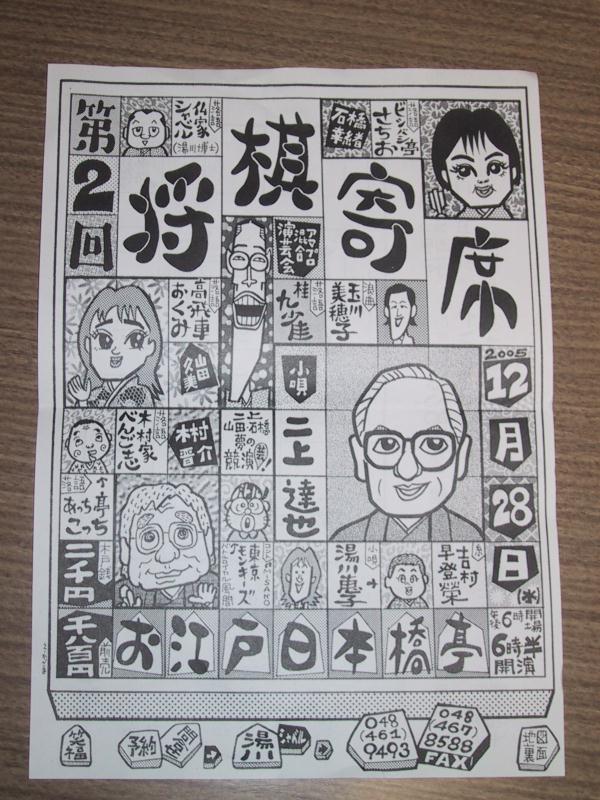 第2回
将棋寄席
落語
仏家
シャベル
(湯川博士)
石橋
幸緒
落語
ビンパン亭
さちお
アマプロ
混合
演芸会
落語
高飛車
おくみ
落語
桂
九雀
浪曲
玉川
美穂子
山田
久美
小唄
二上
達也
2005
12
月
28
日
(水)
落語
木村家
べんご志
木村
晋介
二石橋
山田夢の
競演
芸!
落語
あっち亭
こっち
東京
モンキーズ
小唄
湯川恵子
糸
吉村
早登栄
木戸銭
二千円
前売
千八百円
お江戸日本橋亭
開場
午後6時
6時半
開演
笑福
予約
空間
湯
シャベル
048
(461)
9493
048
(467)
8588
FAX
地図
裏面